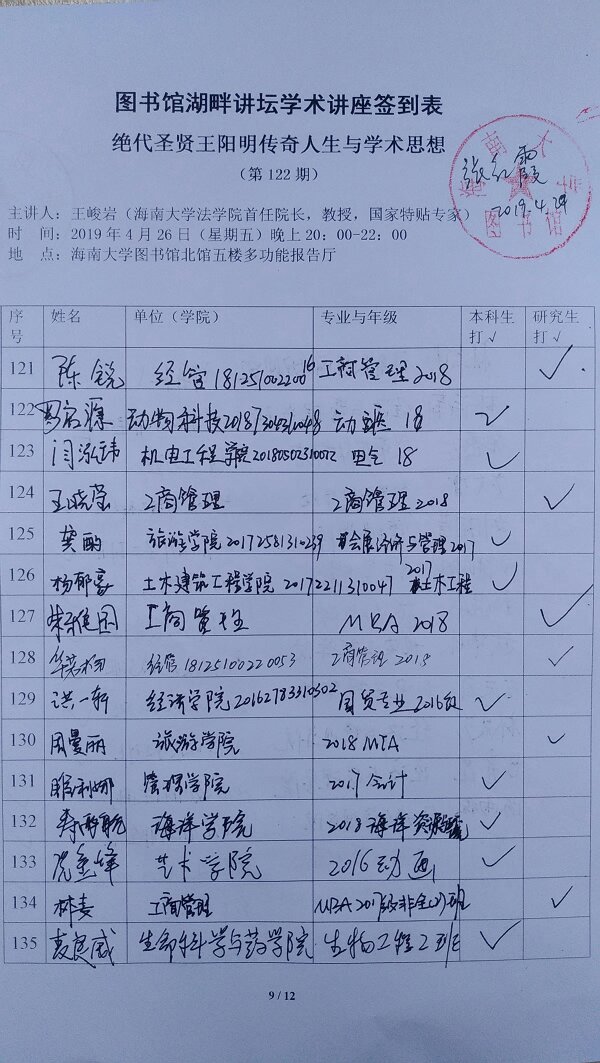 图书馆湖畔讲坛学术讲座签到表
绝代圣贤王阳明传奇人生与学术思想
（第 122 期）
张红霞
2019.4.29
图书馆
主讲人：王峻岩（海南大学法学院首任院长，教授，国家特贴专家）
时 间：2019 年 4 月 26 日（星期五）晚上 20：00-22：00
地 点：海南大学图书馆北馆五楼多功能报告厅
序号 姓名 单位（学院） 专业与年级 本科生打√ 研究生打√
121 陈锐 经管 18125100220016 工商管理 2018 √
122 动物科技 20187304310048 动医 18 √
123 闫泓玮 机电工程学院 20180502310072 电气 18 √
124 王晓莹 工商管理 工商管理 2018 √
125 龚 旅游学院 20172581310239 会展经济与管理 2017 √
126 杨郁豪 土木建筑工程学院 20172211310047 2017 土木工程 √
127 工商管理 MBA 2018 √
128 经管 18125100220053 工商管理 2018 √
129 洪一轩 经济学院 20162783310302 国贸专业 2016级 √
130 周曼丽 旅游学院 2018 MTA √
131 管理学院 2017 会计 √
132 海洋学院 2018 海洋资源 √
133 艺术学院 2016 动画 √
134 林麦 工商管理 MBA 2017级非全 班 √
135 威 生命科学与药学院 生物工程2班 √
9 / 12